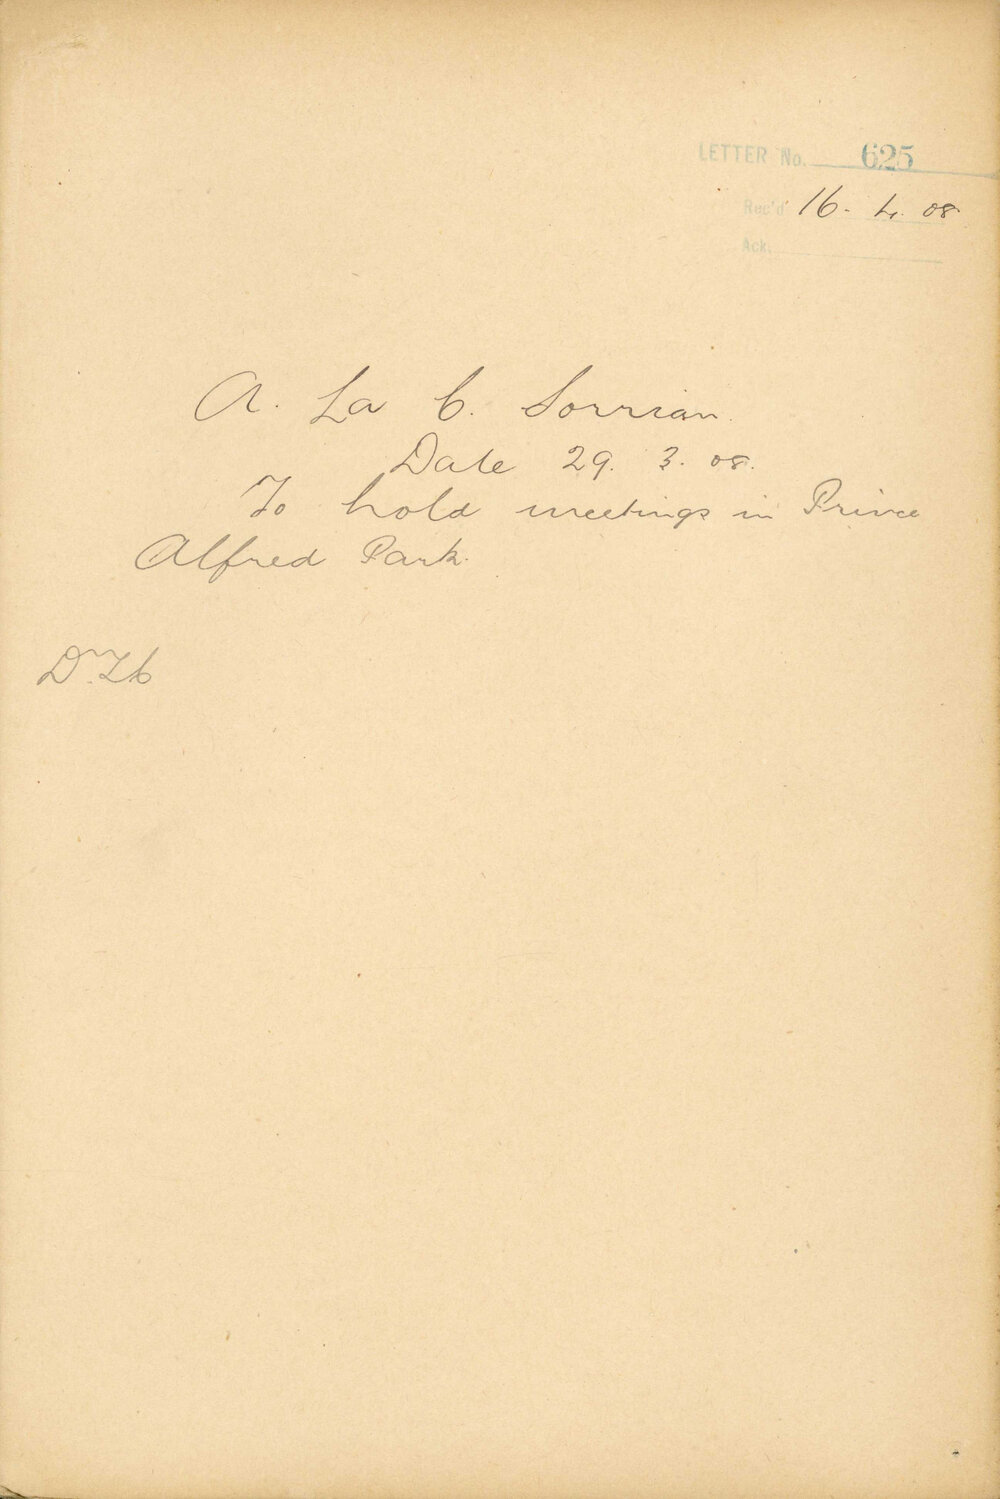 LETTER No. 625
Rec'd 16. 4. 08
Ack.
A. La C. Sorrian.
Date 29. 3. 08.
To hold meetings in Prince
Alfred Park.